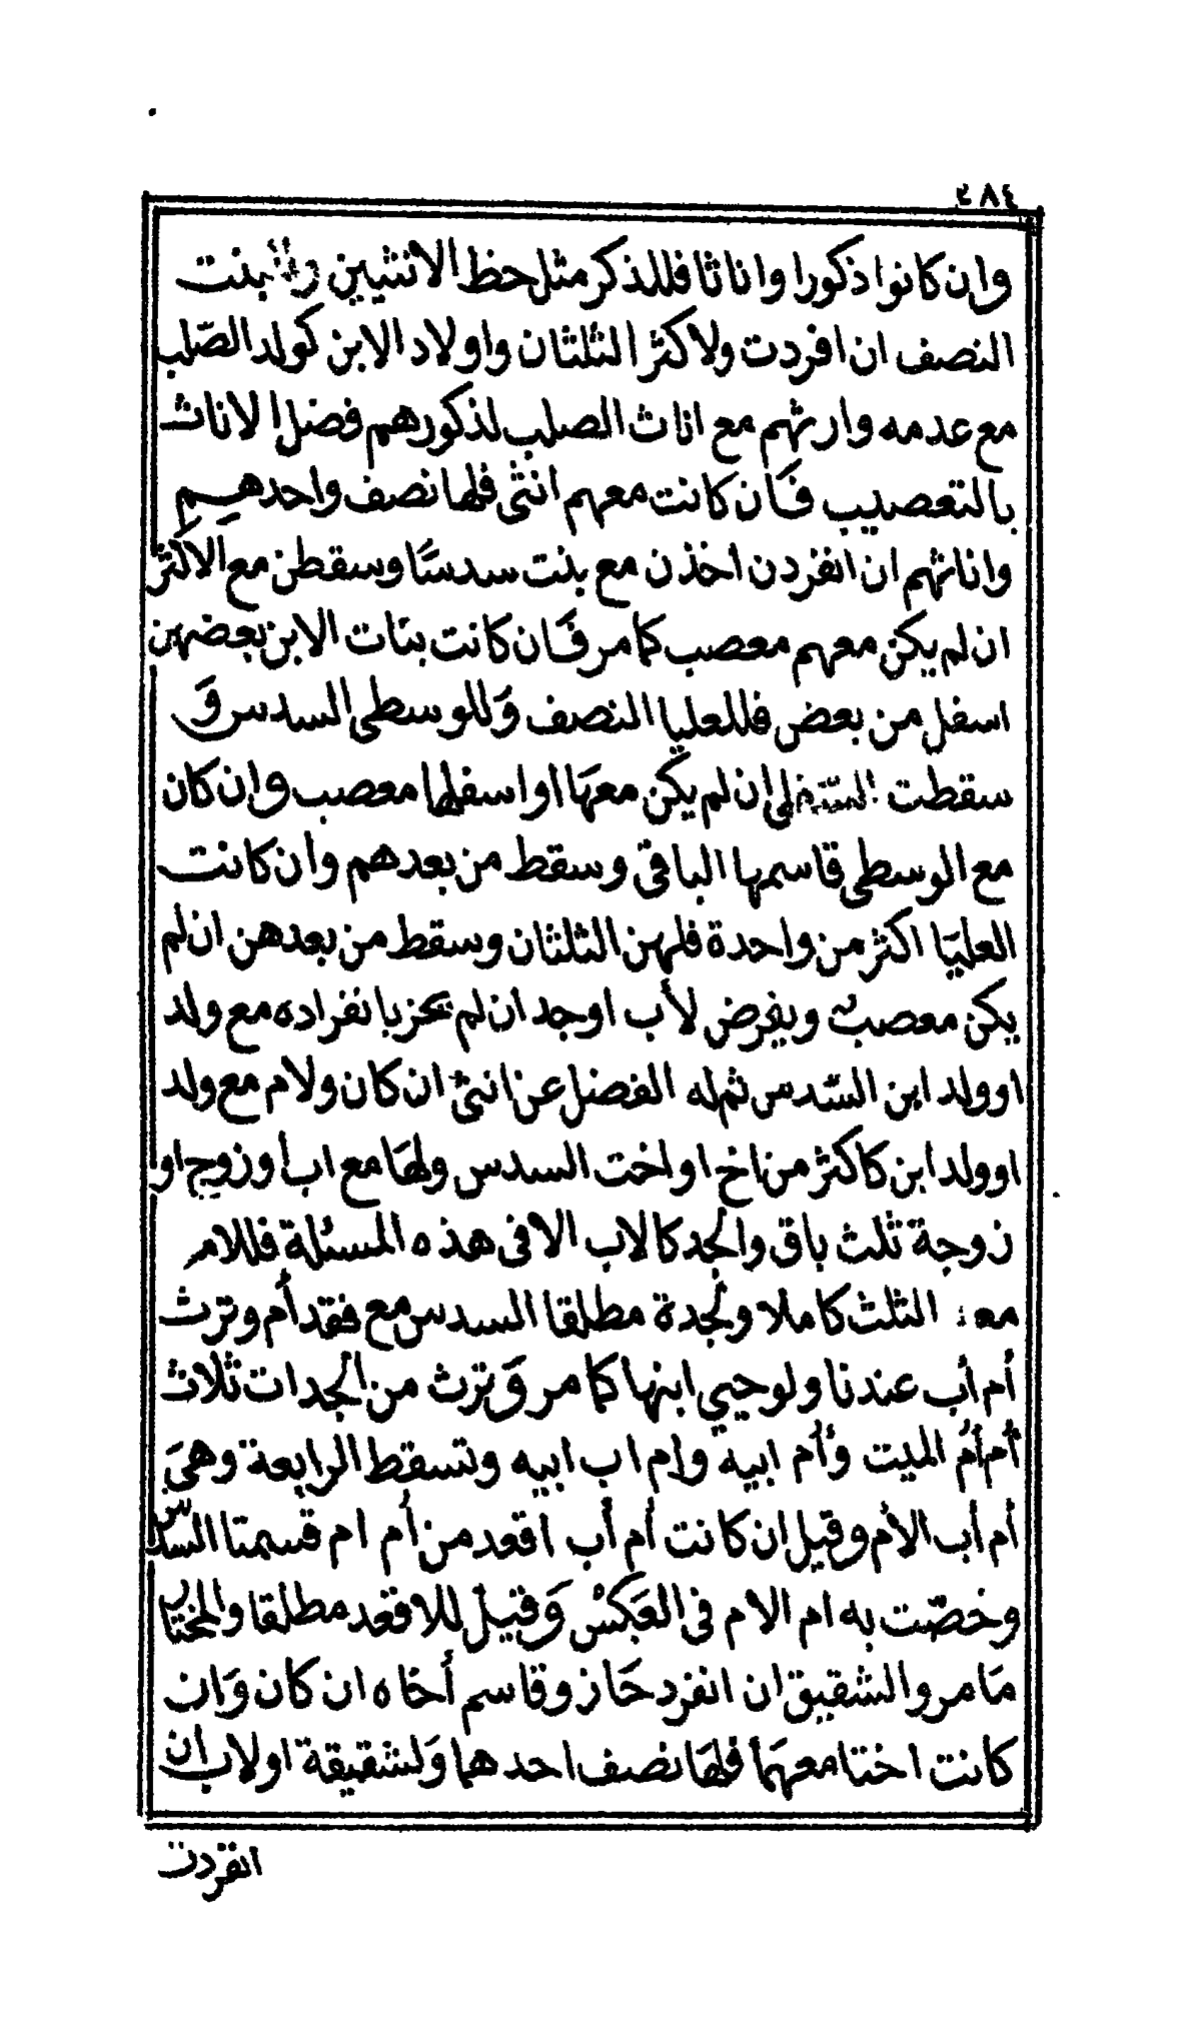 ٢٨٤
وان كانوا ذكورا واناثا فللذكر مثل حظ الانثيين ولبنت
النصف ان افردت ولاكثر الثلثان واولاد الابن كولد الصّلب
مع عدمه وارثهم مع اناث الصلب لذكورهم فضل الاناث
بالتعصيب فان كانت معهم انثى فلها نصف واحدهم
واناثهم ان انفردن اخذن مع بنت سدسًا وسقطن مع الاكثر
ان لم يكن معهم معصب كما مر فان كانت بنات الابن بعضهن
اسفل من بعض فللعليا النصف وللوسطى السدس و
سقطت السفلى ان لم يكن معها او اسفلها معصب وان كان
مع الوسطى قاسمها الباقي وسقط من بعدهم وان كانت
العليا اكثر من واحدة فلهن الثلثان وسقط من بعدهن ان لم
يكن معصب ويفرض لأب اوجد ان لم يحز بانفراده مع ولد
اوولد ابن السّدس ثم له الفضل عن انثى ان كان ولام مع ولد
اوولد ابن كاكثر من اخ او اخت السدس ولها مع اب أو زوج او
زوجة ثلث باق والجد كالاب الا فى هذه المسئلة فللام
معه الثلث كاملا ولجدة مطلقا السدس مع فقد أم وترث
أم أب عندنا ولو حيي ابنها كما مر وترث من الجدات ثلاث
أم أمُ الميت وأم ابيه وام اب ابيه وتسقط الرابعة وهى
أم أب الأم وقيل إن كانت أم أب اقعد من أم ام قسمتا السدس
وخصّت به ام الام فى العكس وقيل للاقعد مطلقا والمختار
ما مر والشقيق ان انفرد حاز وقاسم أخاه ان كان وان
كانت اختا معهما فلها نصف احدهما ولشقيقة اولاب ان
انفردت